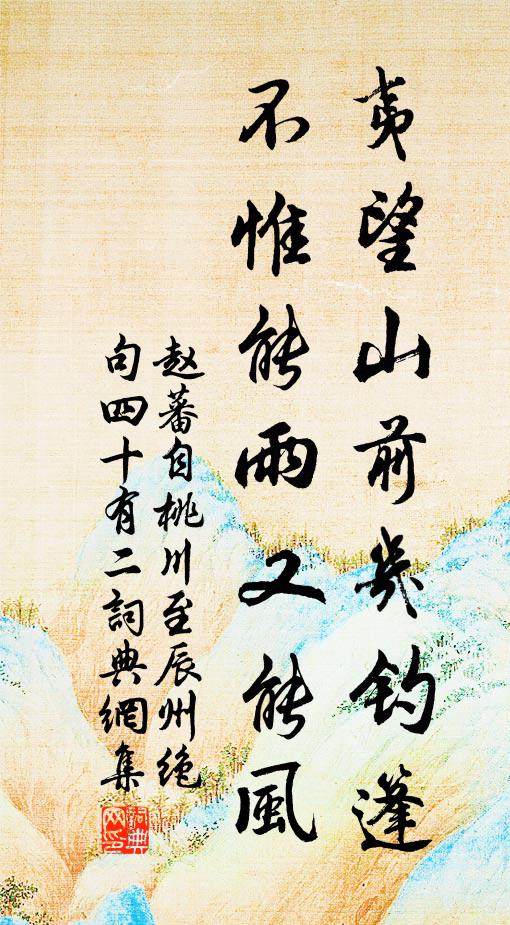 夷望山前幾釣蓬
不惟能雨又能風
赵蕃自桃川至辰州绝
句四十有二詞典網集
詞典网印